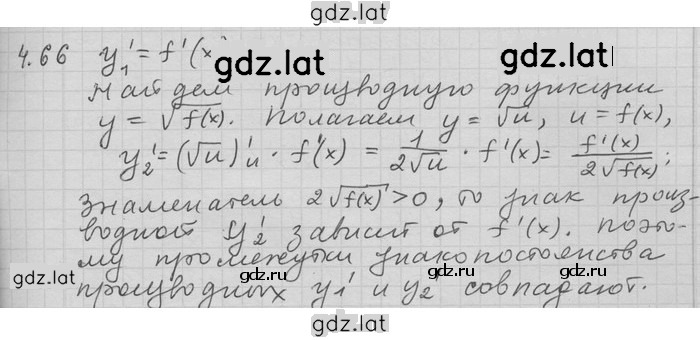 gdz.lat
4.66 y₁' = f'(x
gdz.lat gdz.lat
Найдем производную функции
y = √f(x). Полагаем y = √u, u = f(x),
y₂' = (√u)'u · f'(x) = 1/(2√u) · f'(x) = f'(x)/(2√f(x));
Знаменатель 2√f(x) > 0, то знак произ-
водной y₂' зависит от f'(x). Поэто-
му промежутки знакопостоянства
gdz.lat gdz.lat gdz.lat
производных y₁' и y₂' совпадают.
gdz.lat